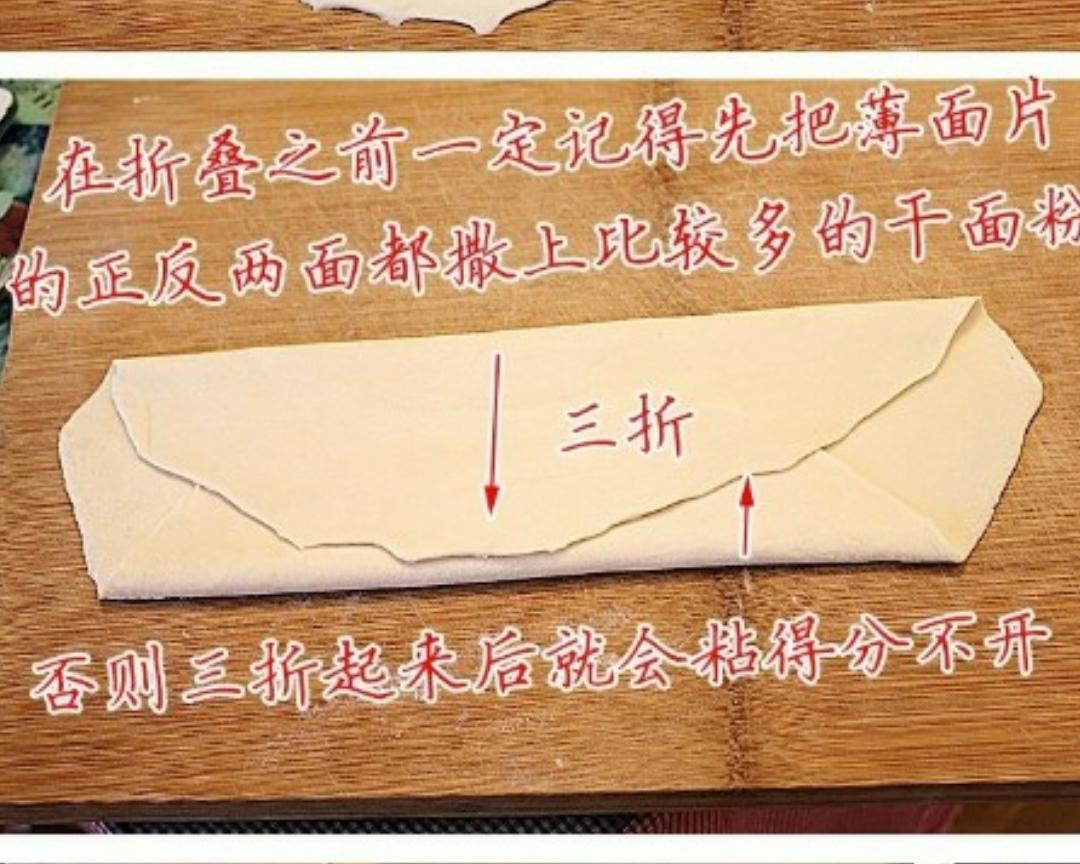 在折叠之前一定记得先把薄面片
的正反两面都撒上比较多的干面粉
三折
否则三折起来后就会粘得分不开